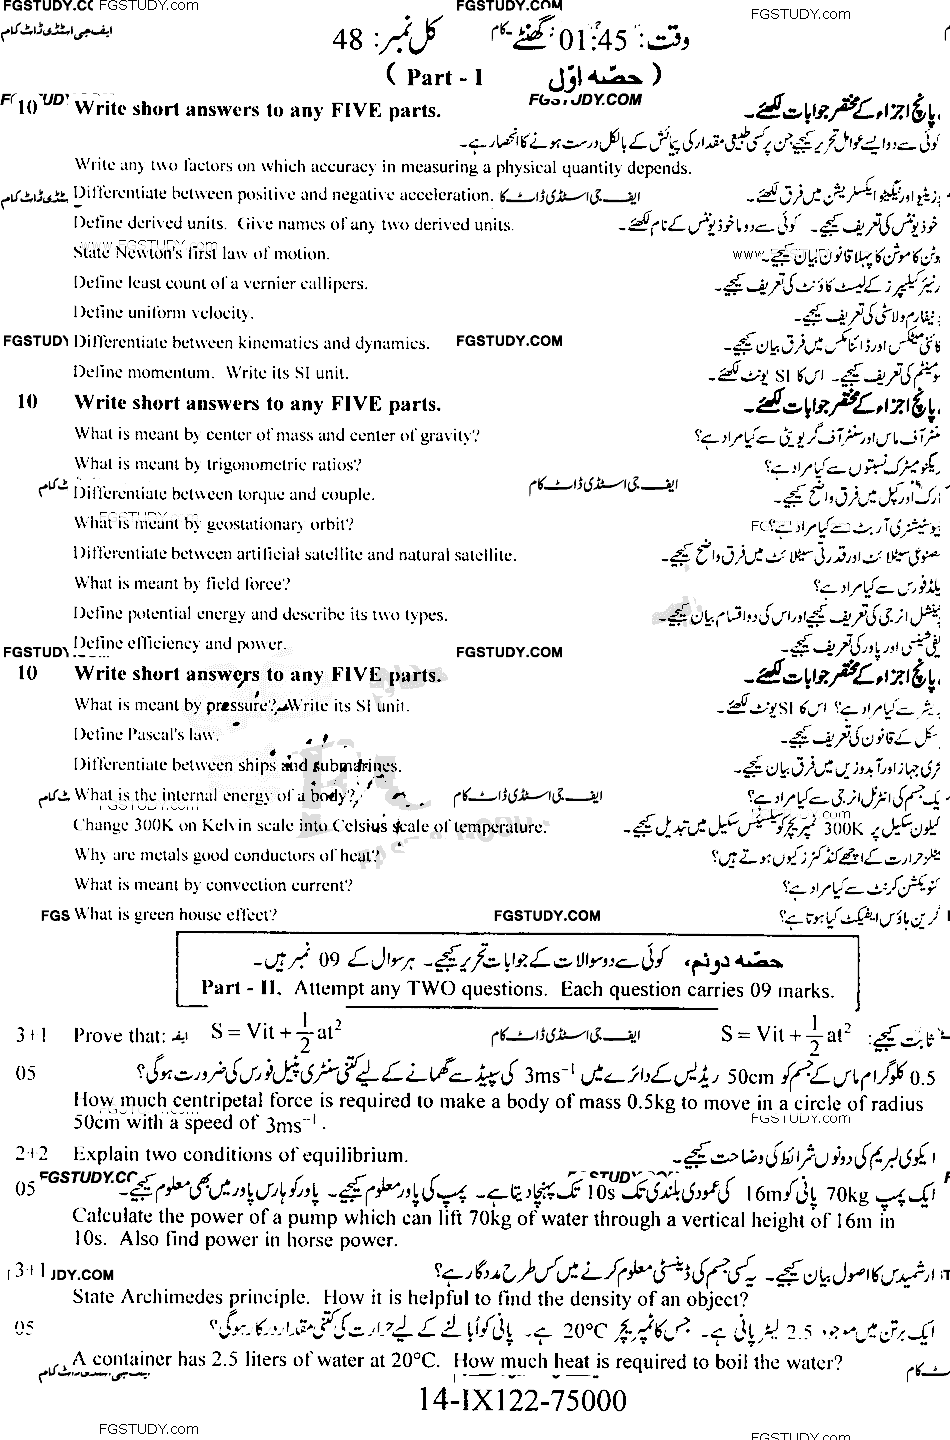 FGSTUDY.CC FGSTUDY.com FGSTUDY.COM FGSTUDY.com
ایف جی اسٹڈی ڈاٹ کام
کل نمبر: 48 وقت: 01:45 گھنٹے
( Part - I حصہ اوّل )
FGSTUDY.COM
10 Write short answers to any FIVE parts. پانچ اجزاء کے مختصر جوابات لکھئے۔
کوئی سے دو ایسے عوامل تحریر کیجیے جن پر کسی طبیعی مقدار کی پیمائش کے بالکل درست ہونے کا انحصار ہے۔
Write any two factors on which accuracy in measuring a physical quantity depends.
Differentiate between positive and negative acceleration. ایف جی اسٹڈی ڈاٹ کام پوزیٹو اور نیگیٹو ایکسلریشن میں فرق لکھئے۔
Define derived units. Give names of any two derived units. ماخوذ یونٹس کی تعریف کیجیے۔ کوئی سے دو ماخوذ یونٹس کے نام لکھئے۔
State Newton's first law of motion. نیوٹن کا موشن کا پہلا قانون بیان کیجیے۔
Define least count of a vernier callipers. ورنیئر کیلیپرز کے لیسٹ کاؤنٹ کی تعریف کیجیے۔
Define uniform velocity. یونیفارم ولاسٹی کی تعریف کیجیے۔
FGSTUDY Differentiate between kinematics and dynamics. FGSTUDY.COM کائنی میٹکس اور ڈائنامکس میں فرق بیان کیجیے۔
Define momentum. Write its SI unit. مومینٹم کی تعریف کیجیے۔ اس کا SI یونٹ لکھئے۔
10 Write short answers to any FIVE parts. پانچ اجزاء کے مختصر جوابات لکھئے۔
What is meant by center of mass and center of gravity? سنٹر آف ماس اور سنٹر آف گریویٹی سے کیا مراد ہے؟
What is meant by trigonometric ratios? ٹریگنومیٹرک نسبتوں سے کیا مراد ہے؟
Differentiate between torque and couple. ایف جی اسٹڈی ڈاٹ کام ٹارک اور کپل میں فرق واضح کیجیے۔
What is meant by geostationary orbit? جیوسٹیشنری آربٹ سے کیا مراد ہے؟
Differentiate between artificial satellite and natural satellite. مصنوعی سیٹلائٹ اور قدرتی سیٹلائٹ میں فرق واضح کیجیے۔
What is meant by field force? فیلڈ فورس سے کیا مراد ہے؟
Define potential energy and describe its two types. پوٹینشل انرجی کی تعریف کیجیے اور اس کی دو اقسام بیان کیجیے۔
FGSTUDY Define efficiency and power. FGSTUDY.COM ایفی شینسی اور پاور کی تعریف کیجیے۔
10 Write short answers to any FIVE parts. پانچ اجزاء کے مختصر جوابات لکھئے۔
What is meant by pressure? Write its SI unit. پریشر سے کیا مراد ہے؟ اس کا SI یونٹ لکھئے۔
Define Pascal's law. پاسکل کے قانون کی تعریف کیجیے۔
Differentiate between ships and submarines. بحری جہاز اور آبدوز میں فرق بیان کیجیے۔
What is the internal energy of a body? ایف جی اسٹڈی ڈاٹ کام ایک جسم کی انٹرنل انرجی سے کیا مراد ہے؟
Change 300K on Kelvin scale into Celsius scale of temperature. کیلون سکیل پر 300K ٹمپریچر کو سیلسیئس سکیل میں تبدیل کیجیے۔
Why are metals good conductors of heat? میٹلز حرارت کے اچھے کنڈکٹرز کیوں ہوتے ہیں؟
What is meant by convection current? کنویکشن کرنٹ سے کیا مراد ہے؟
FGS What is green house effect? FGSTUDY.COM گرین ہاؤس ایفیکٹ کیا ہوتا ہے؟
حصہ دوئم، کوئی سے دو سوالات کے جوابات تحریر کیجیے۔ ہر سوال کے 09 نمبر ہیں۔
Part - II. Attempt any TWO questions. Each question carries 09 marks.
3+1 Prove that: S = Vit + 1/2 at² ایف جی اسٹڈی ڈاٹ کام S = Vit + 1/2 at² ثابت کیجیے:
05 0.5 کلوگرام ماس کے جسم کو 50cm ریڈیس کے دائرے میں 3ms⁻¹ کی سپیڈ سے گھمانے کے لیے کتنی سنٹری پیٹل فورس کی ضرورت ہوگی؟
How much centripetal force is required to make a body of mass 0.5kg to move in a circle of radius
50cm with a speed of 3ms⁻¹. FGSTUDY.COM
2+2 Explain two conditions of equilibrium. ایکوی لبریم کی دونوں شرائط کی وضاحت کیجیے۔
05 FGSTUDY.CC ایک پمپ 70kg پانی کو 16m کی عمودی بلندی تک 10s تک پہنچا دیتا ہے۔ پمپ کی پاور معلوم کیجیے۔ پاور کو ہارس پاور میں بھی معلوم کیجیے۔
Calculate the power of a pump which can lift 70kg of water through a vertical height of 16m in
10s. Also find power in horse power.
3+1 JDY.COM ارشمیدس کا اصول بیان کیجیے۔ یہ کسی جسم کی ڈینسٹی معلوم کرنے میں کس طرح مددگار ہے؟
State Archimedes principle. How it is helpful to find the density of an object?
05 ایک برتن میں موجود 2.5 لیٹر پانی ہے۔ جس کا ٹمپریچر 20°C ہے۔ پانی کو اُبالنے کے لیے حرارت کی کتنی مقدار درکار ہوگی؟
A container has 2.5 liters of water at 20°C. How much heat is required to boil the water?
14-IX122-75000
FGSTUDY.com FGSTUDY.com